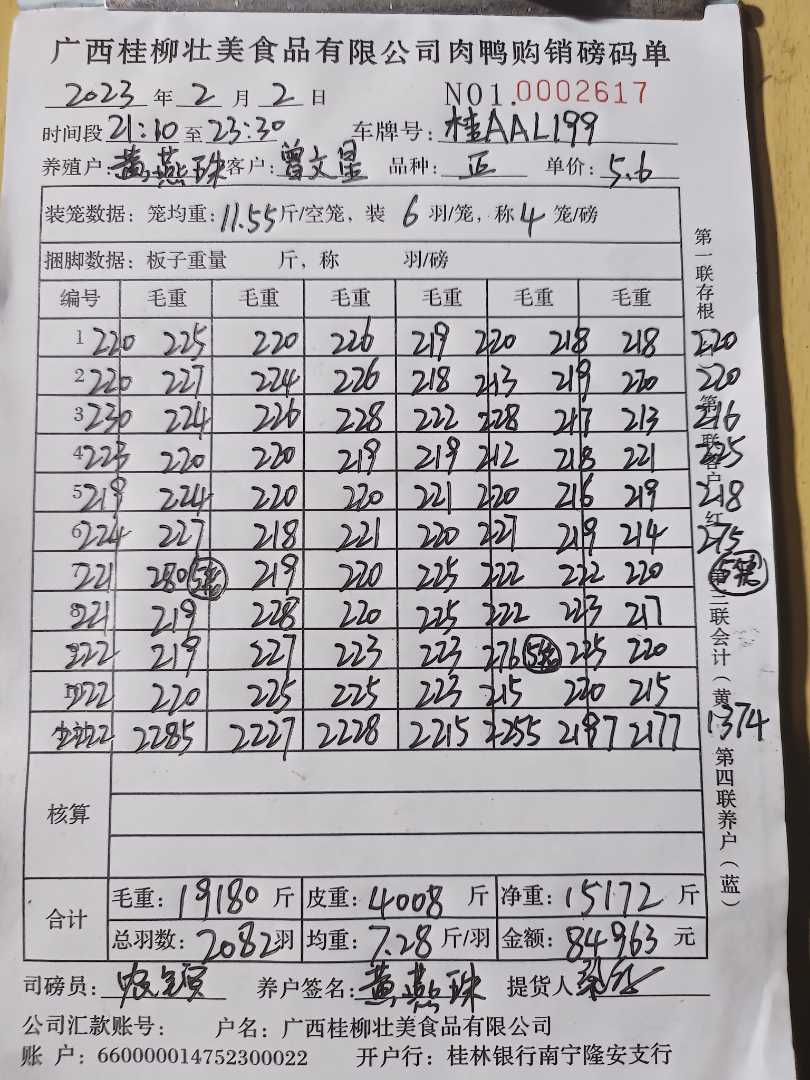 广西桂柳壮美食品有限公司肉鸭购销磅码单
2023 年 2 月 2 日 NO1.0002617
时间段 21:10 至 23:30 车牌号: 桂AAL199
养殖户: 黄燕珠 客户: 曾文星 品种: 正 单价: 5.6
装笼数据: 笼均重: 11.55 斤/空笼, 装 6 羽/笼, 称 4 笼/磅
捆脚数据: 板子重量 斤, 称 羽/磅
编号 毛重 毛重 毛重 毛重 毛重 毛重
1 220 225 220 226 219 220 218 218 220
2 220 227 224 226 218 213 219 220 220
3 230 224 226 228 222 228 217 213 216
4 223 220 220 219 219 212 218 221 225
5 219 224 220 220 221 220 216 219 218
6 224 227 218 221 220 227 219 214 275
7 221 280 5笼 219 220 225 222 222 220 5笼
8 221 219 228 220 225 222 223 217
222 219 227 223 223 276 5笼 225 220
222 220 225 225 223 215 220 215
2285 2227 2228 2215 2255 2197 2177 1374
核算
合计 毛重: 19180 斤 皮重: 4008 斤 净重: 15172 斤
总羽数: 2082 羽 均重: 7.28 斤/羽 金额: 84963 元
司磅员: 养户签名: 黄燕珠 提货人
公司汇款账号: 户名: 广西桂柳壮美食品有限公司
账 户: 660000014752300022 开户行: 桂林银行南宁隆安支行
第一联存根
第二联客户(红
第三联会计(黄
第四联养户(蓝)